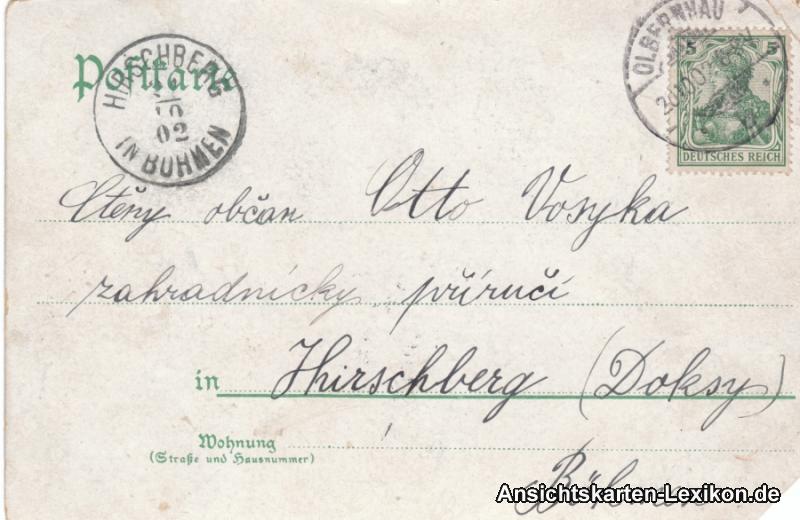 Postkarte
HIRSCHBERG
10
02
IN BÖHMEN
OLBERNHAU
5 5
DEUTSCHES REICH
Ctěný občan Otto Vosyka
zahradnický příručí
in Hirschberg (Doksy)
Wohnung
(Straße und Hausnummer)
Böhmen
Ansichtskarten-Lexikon.de